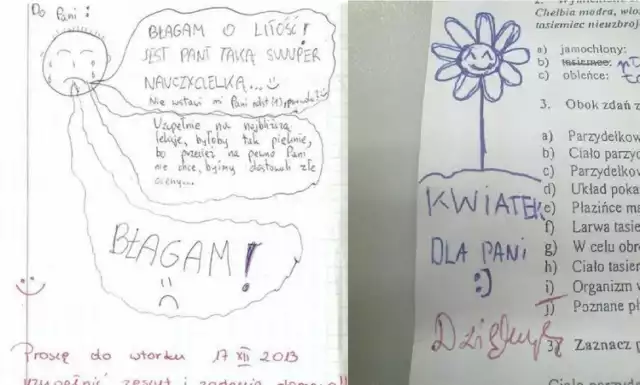 Do Pani:
BŁAGAM O LITOŚĆ!
JEST PANI TAKĄ SUUPER
NAUCZYCIELKĄ...
Nie wstawi mi Pani ndst(1), prawda?
Uzupełnię na najbliższą
lekcję, byłoby tak pięknie,
bo przecież na pewno Pani
nie chce, byśmy dostawali złe
oceny...
BŁAGAM!
Proszę do wtorku 17 XII 2013
uzupełnić zeszyt i zadania domowe!!
Chełbia modra, wło
tasiemiec nieuzbroj
a) jamochłony:
b) tasiemce:
c) obleńce:
3. Obok zdań z
a) Parzydełkow
b) Ciało parzyd
c) Parzydełkow
d) Układ pokar
e) Płazińce ma
f) Larwa tasie
g) W celu obro
h) Ciało tasiem
i) Organizm w
j) Poznane pł
KWIATEK
DLA PANI
:)
Dziękuję
3. Zaznacz p
Ciało parzydeł